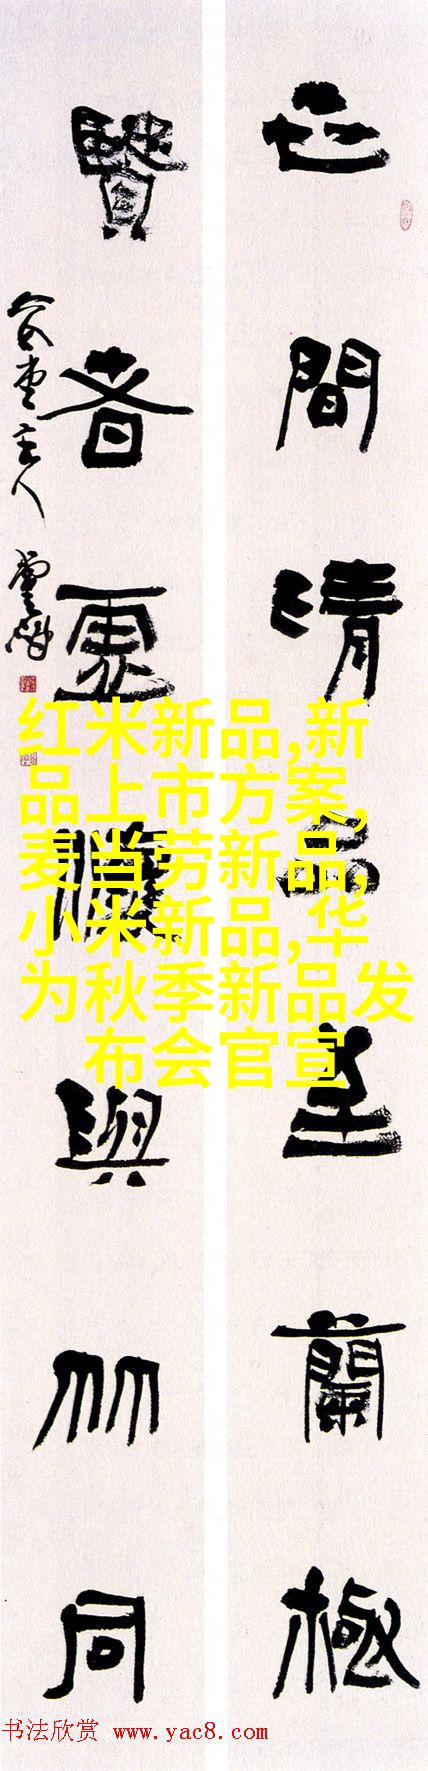 世間清品至蘭極
賢者虛懷與竹同
红米新品,新
品上市方案,
麦当劳新品,
小米新品,华
为秋季新品发
布会官宣
书法欣赏 www.yac8.com